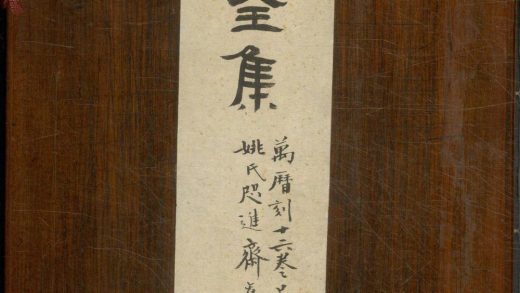 全集
萬曆刻十六卷
姚氏咫進齋